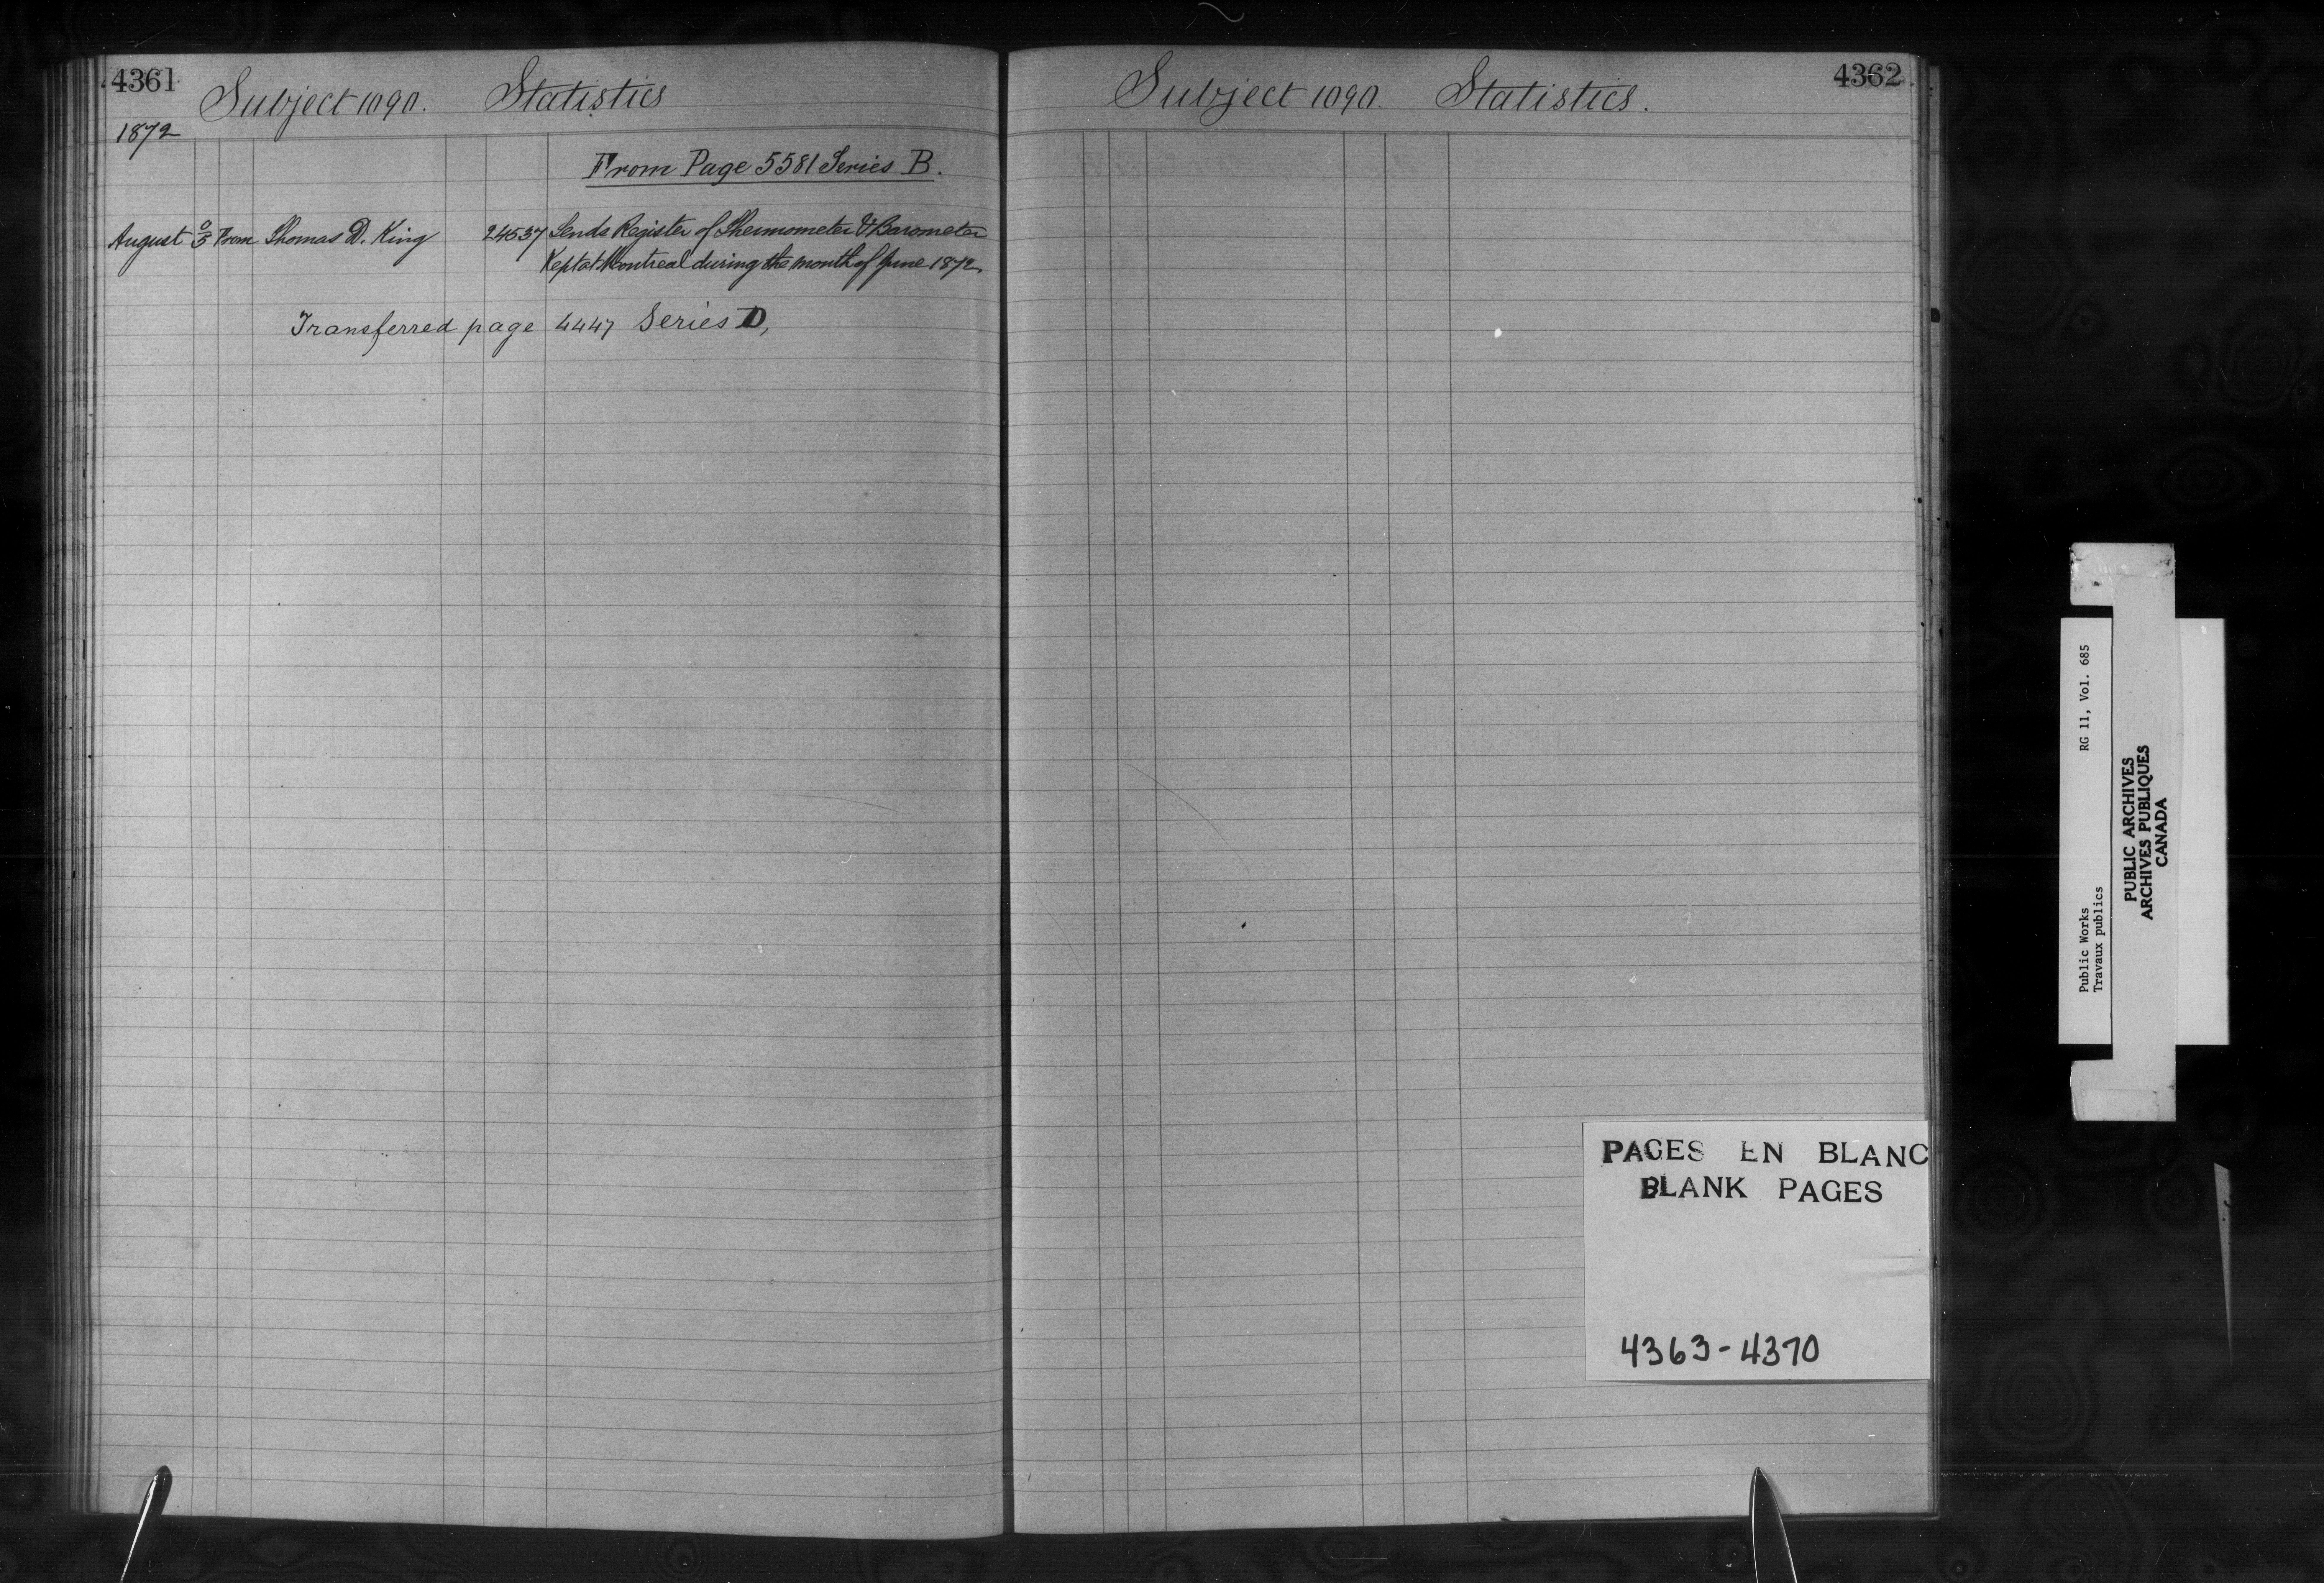 4361
Subject 1090. Statistics
1872
From Page 5581 Series B.
August From Thomas D. King 24537 Sends Register of Thermometer & Barometer
Kept at Montreal during the month of June 1872.
Transferred page 4447 Series D,
4362
Subject 1090. Statistics.
PAGES EN BLANC
BLANK PAGES
4363-4370
Public Works RG 11, Vol. 685
Travaux publics
PUBLIC ARCHIVES
ARCHIVES PUBLIQUES
CANADA